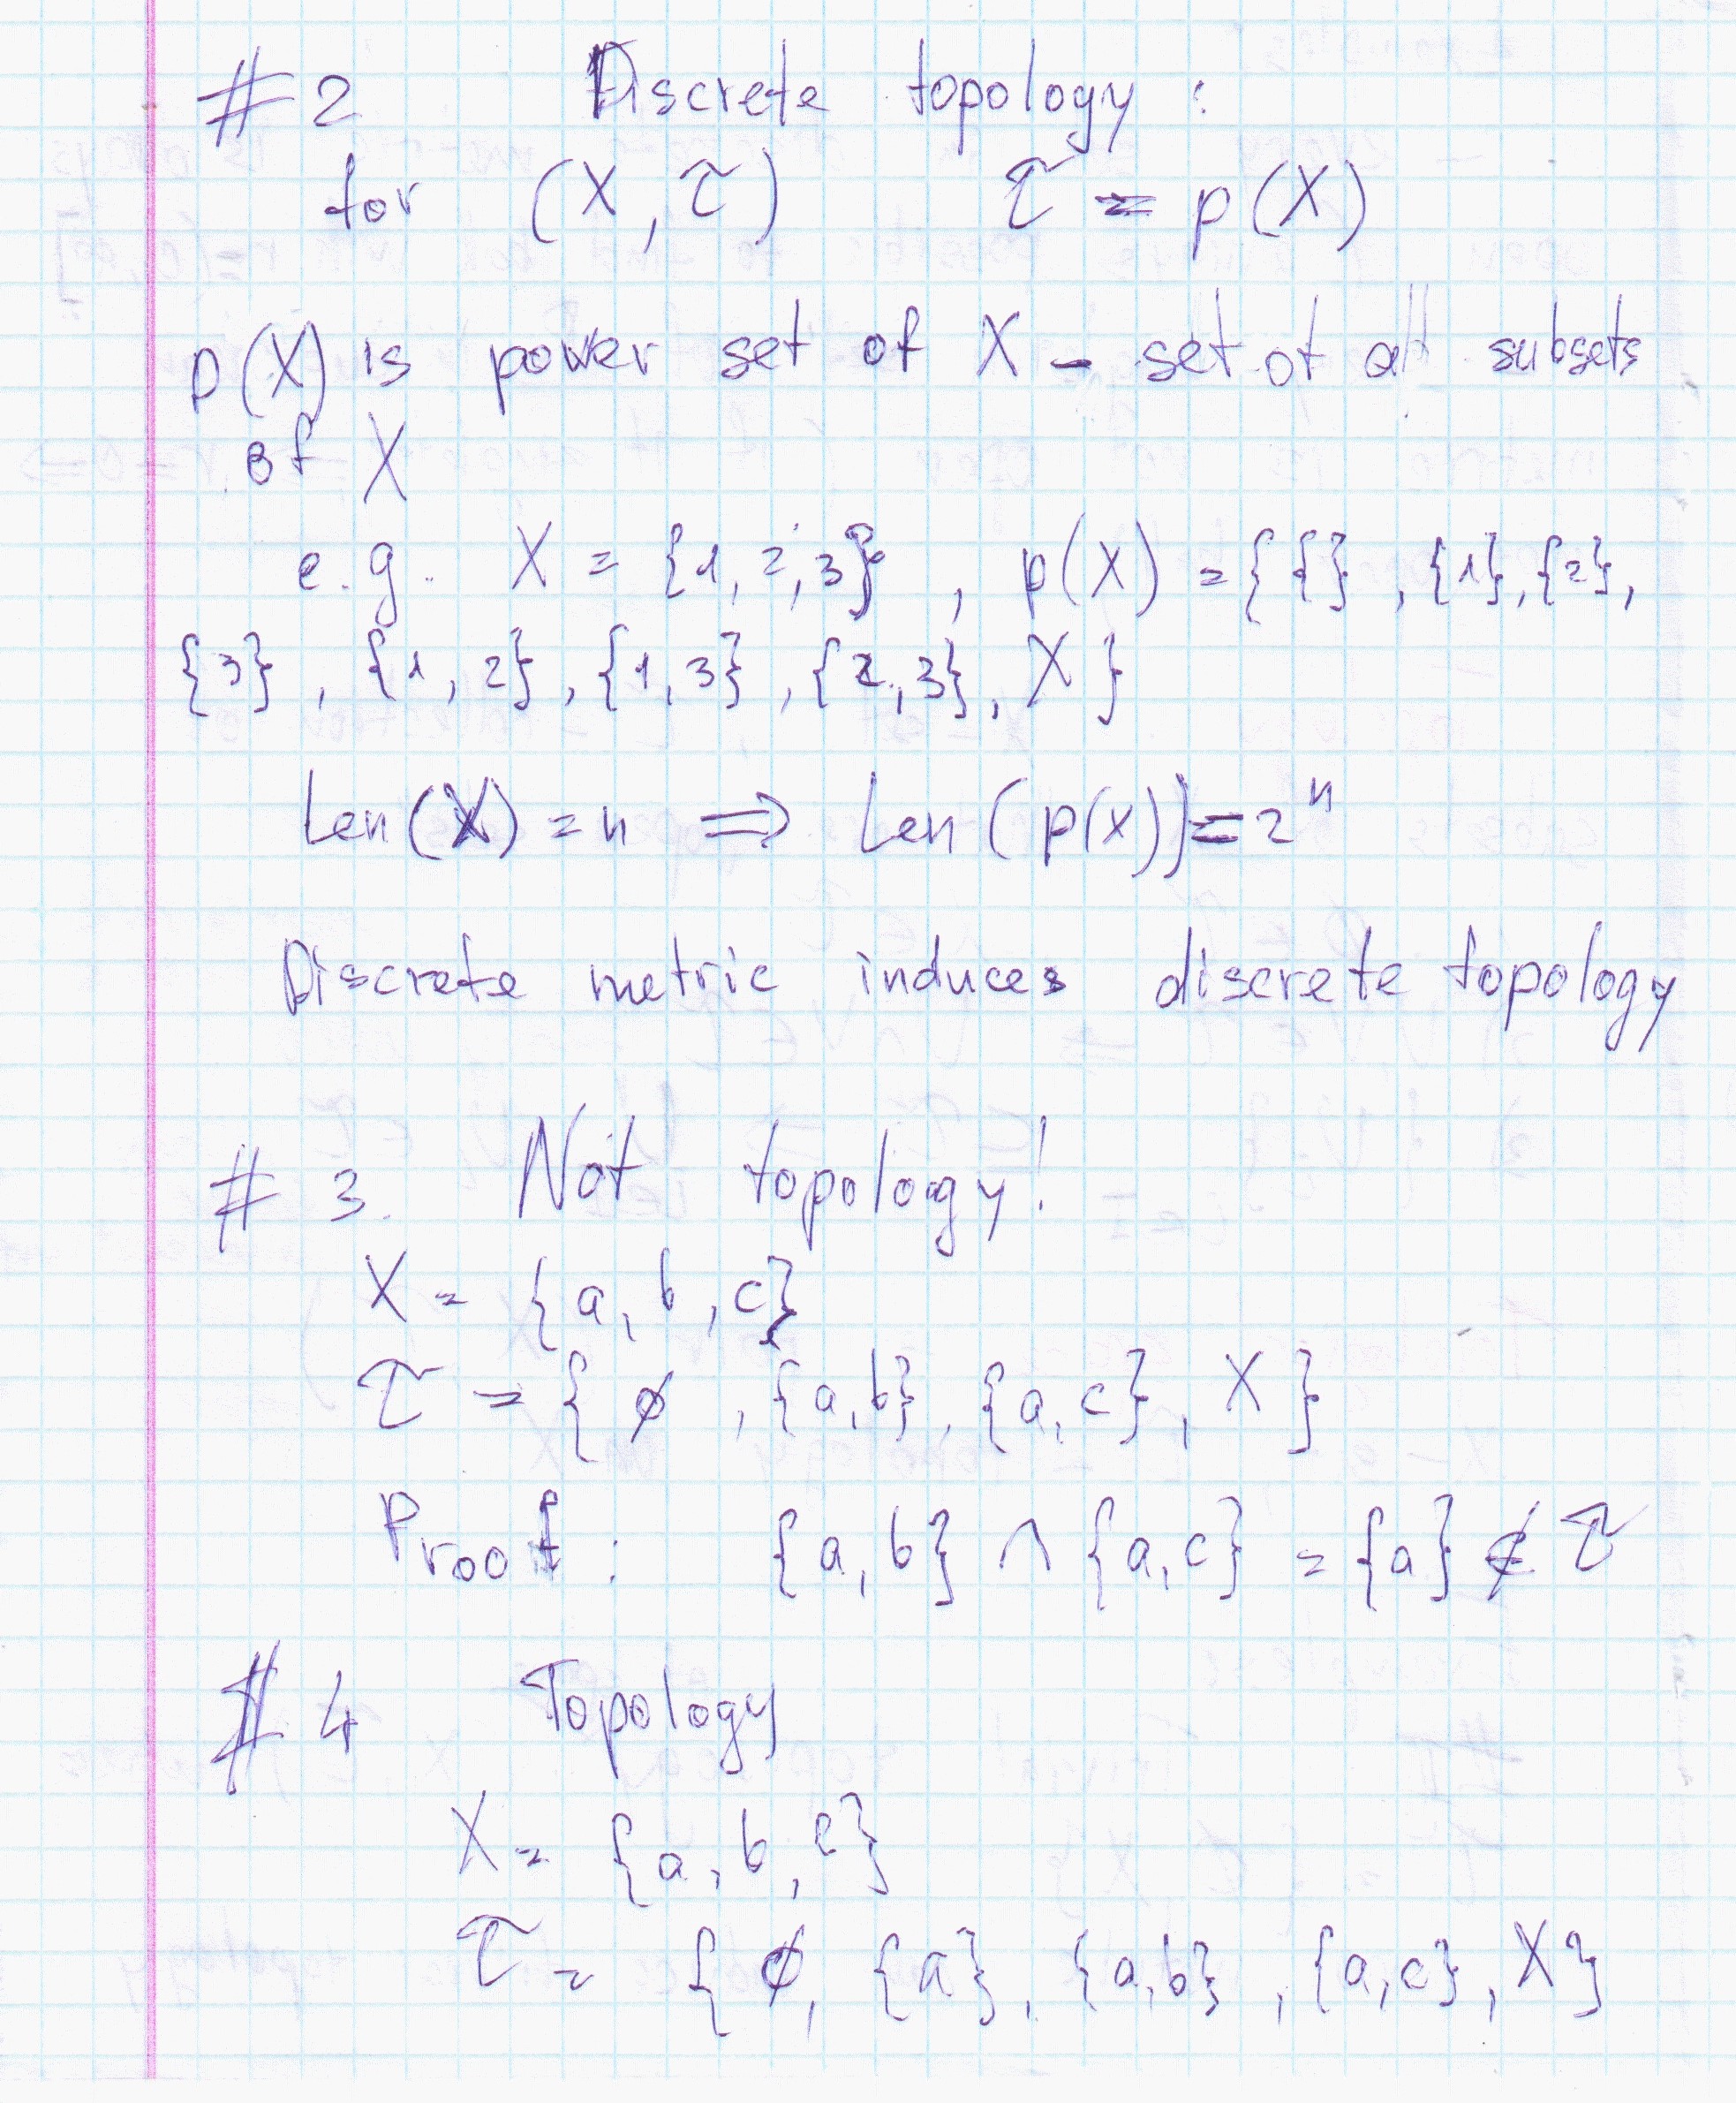 #2 Discrete topology :
for (X, τ) τ = p(X)
p(X) is power set of X - set of all subsets
of X
e.g. X = {1, 2, 3} , p(X) = { {} , {1}, {2},
{3} , {1, 2} , {1, 3} , {2, 3}, X }
Len(X) = n ⟹ Len(p(x)) = 2ⁿ
Discrete metric induces discrete topology
# 3. Not topology!
X = {a, b, c}
τ = { ∅ , {a, b} , {a, c} , X }
Proof : {a, b} ∩ {a, c} = {a} ∉ τ
# 4 Topology
X = {a, b, c}
τ = { ∅, {a}, {a, b} , {a, c} , X }